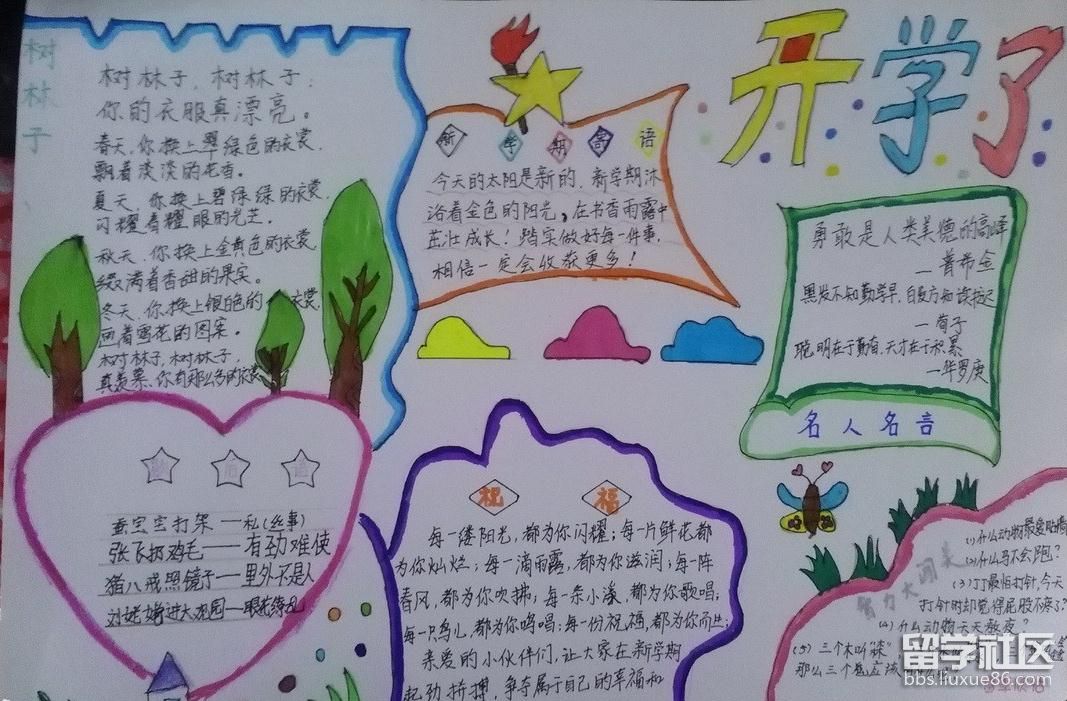 开学了
树林子
树林子,树林子:
你的衣服真漂亮。
春天,你换上翠绿色的衣裳,
飘着淡淡的花香。
夏天,你换上碧绿绿的衣裳,
闪耀着耀眼的光芒。
秋天,你换上金黄色的衣裳,
缀满着香甜的果实。
冬天,你换上银白色的衣裳,
画着雪花的图案。
树林子,树林子,
真羡慕,你有那么多的衣裳
新学期寄语
今天的太阳是新的,新学期沐
浴着金色的阳光,在书香雨露中
茁壮成长!踏实做好每一件事,
相信一定会收获更多!
勇敢是人类美德的高峰
—普希金
黑发不知勤学早,白首方知读书迟
—荀子
聪明在于勤奋,天才在于积累
—华罗庚
名人名言
歇后语
蚕宝宝打架——私(丝事)
张飞扔鸡毛——有劲难使
猪八戒照镜子——里外不是人
刘姥姥进大观园—眼花缭乱
祝福
每一缕阳光,都为你闪耀;每一片鲜花都
为你灿烂;每一滴雨露,都为你滋润;每一阵
春风,都为你吹拂;每一条小溪,都为你歌唱;
每一只鸟儿,都为你鸣唱;每一份祝福,都为你而生;
亲爱的小伙伴们,让大家在新学期
起劲拼搏,争夺属于自己的幸福和
智力大闯关
(1)什么动物最爱贴墙
(2)什么马不会跑?
(3)丁丁最怕打针,今天
打针时却觉得屁股不疼了?
(4)什么动物天天熬夜?
(5)三个木叫"森",
那么三个鬼应该
留学社区
bbs.liuxue86.com